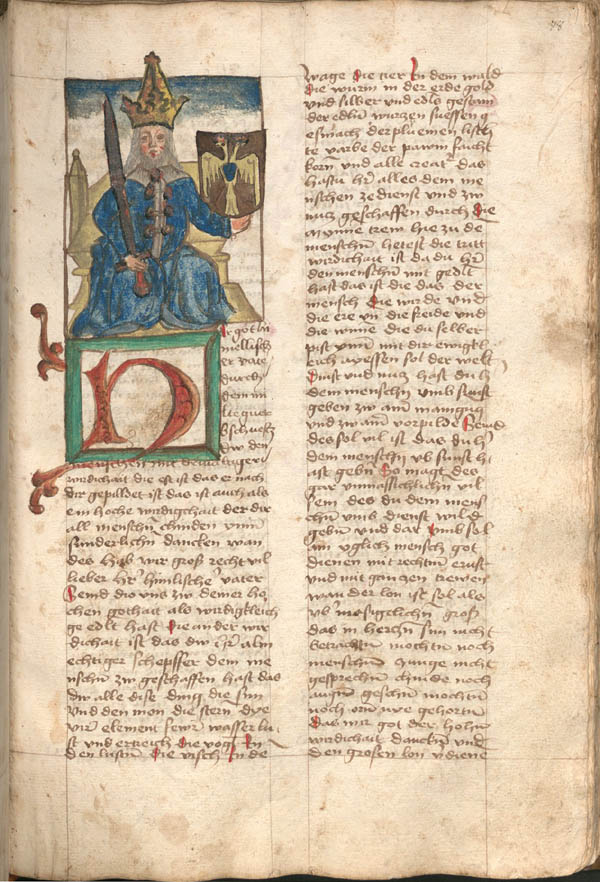 78
Er got hi
mellisch
er vater
durch
dem mi
lte guet
beschuefft
dw den
menschen mit dreivaltiger
wirdichait die erst ist das er nach
dir gepildet ist das ist auch als
ein hoche wirdigchait der dir
all menschn chunden ymer
sunderlichn dancken wan
des hab wir groß recht vil
lieber her himlischer vater
Seind die uns zw deiner ho
chen gothait als wirdigkleich
ge edlt hast Die ander wir
dichait ist das dw alm
echtiger schepffer dem me
nschn zw geschaffen hast das
dw alle dise ding die sun
Und den mon die stern dye
vir element fewr wasser lu
ft und ertreich Die vogl In
den lufften Die visch In de
wage Die tier In dem wald
Die wurm in der erde gold
und silber und edls gestain
der edln wurzen suessen g
esmach der pluemen liech
te varbe der pawm frucht
korn und alle creatur das
hastu her alles dem me
nschen ze dienst und zw
nucz geschaffen durch die
mynne trew hie zu de
menschn hetest die tritt
wirdichait ist da du her
den menschn mit geedlt
hast das ist die das der
mensch die wirde und
die ere und die freide und
die wune die du selber
pist ymer mit dir ewigk
leich niessen sol der welt
dinst und nucz hast du h
dem menschn umb sunst
geben zw ainer manung
und zw ainem vorpilde Seind
des sol vil ist das du her
dem menschn umb sunst h
ast gebn So magt des
gar unmässichlichn vil
sein des du dem mens
chn umb dienst wild
gebn und dar umb sol
ain yglich mensch got
dienen mit rechtem ernst
und mit ganczen trewen
wan der lon ist sol als
ubermesigclichn groß
das in herczn sin nicht
betrachten mochtn noch
menschn zunge nicht
gesprechn chunde noch
augen gesehn mochtn
noch orn nye gehortn
Das wir got der hohn
wirdichait danckn und
den grosen lon v̈diene